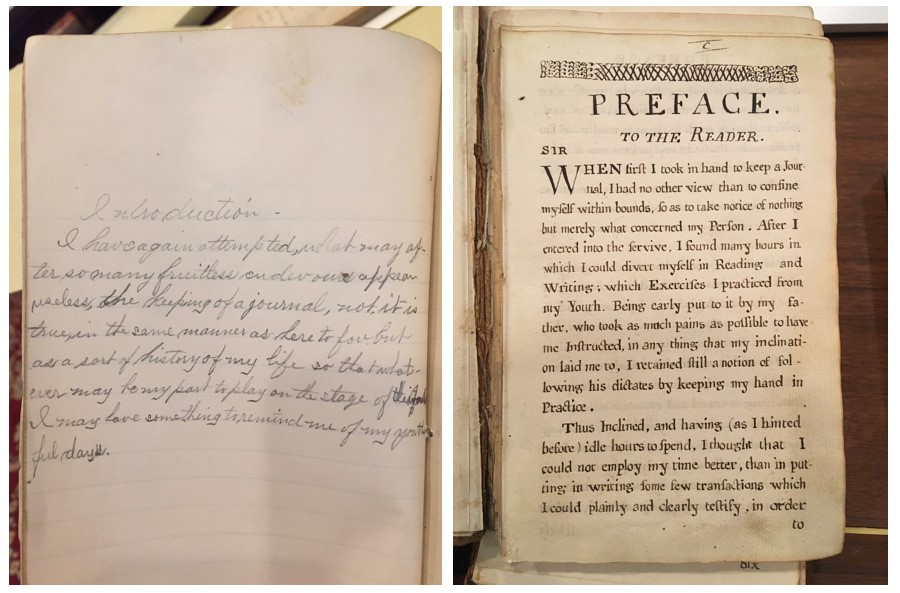 Introduction -
I have again attempted, what may af-
ter, so many fruitless endevours appear
useless, the keeping of a journal, not, it is
true, in the same manner as heretofor but
as a sort of history of my life so that what-
ever may be my part to play on the stage of
I may have something to remind me of my youth
ful days.
C
PREFACE.
TO THE READER.
SIR
WHEN first I took in hand to keep a Jour-
nal, I had no other view than to confine
myself within bounds, so as to take notice of nothing
but merely what concerned my Person. After I
entered into the servive, I found many hours in
which I could divert myself in Reading and
Writing; which Exercises I practiced from
my Youth. Being early put to it by my fa-
ther, who took as much pains as possible to have
me Instructed, in any thing that my inclinati-
on laid me to, I retained still a notion of fol-
lowing his dictates by keeping my hand in
Practice.
Thus Inclined, and having (as I hinted
before) idle hours to spend, I thought that I
could not employ my time better, than in put-
ting in writing some few transactions which
I could plainly and clearly testify, in order
to
six